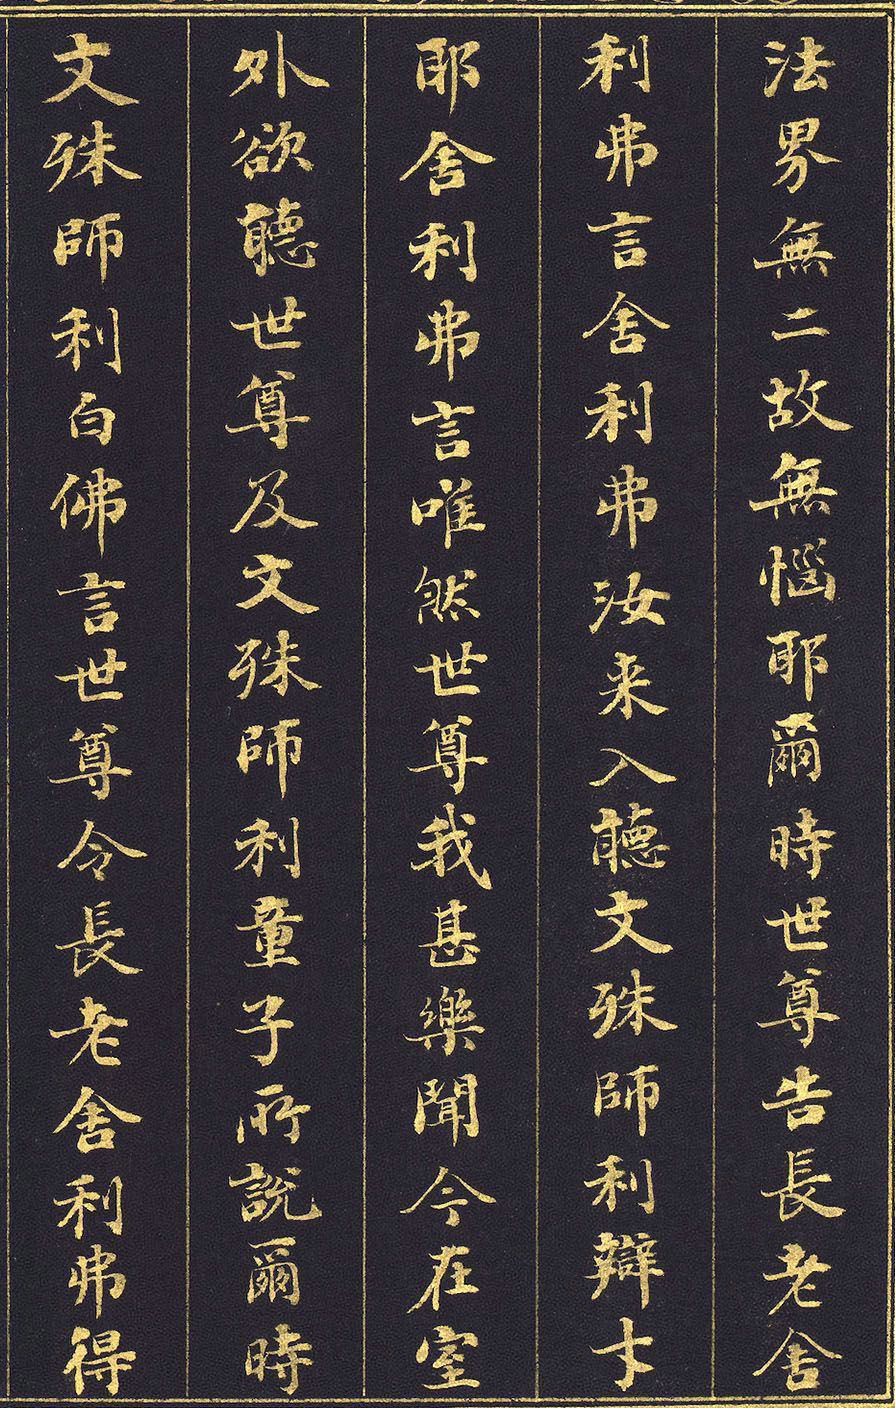 法界無二故無惱耶爾時世尊告長老舍
利弗言舍利弗汝来入聽文殊師利辯才
耶舍利弗言唯然世尊我甚樂聞今在室
外欲聽世尊及文殊師利童子所說爾時
文殊師利白佛言世尊令長老舍利弗得